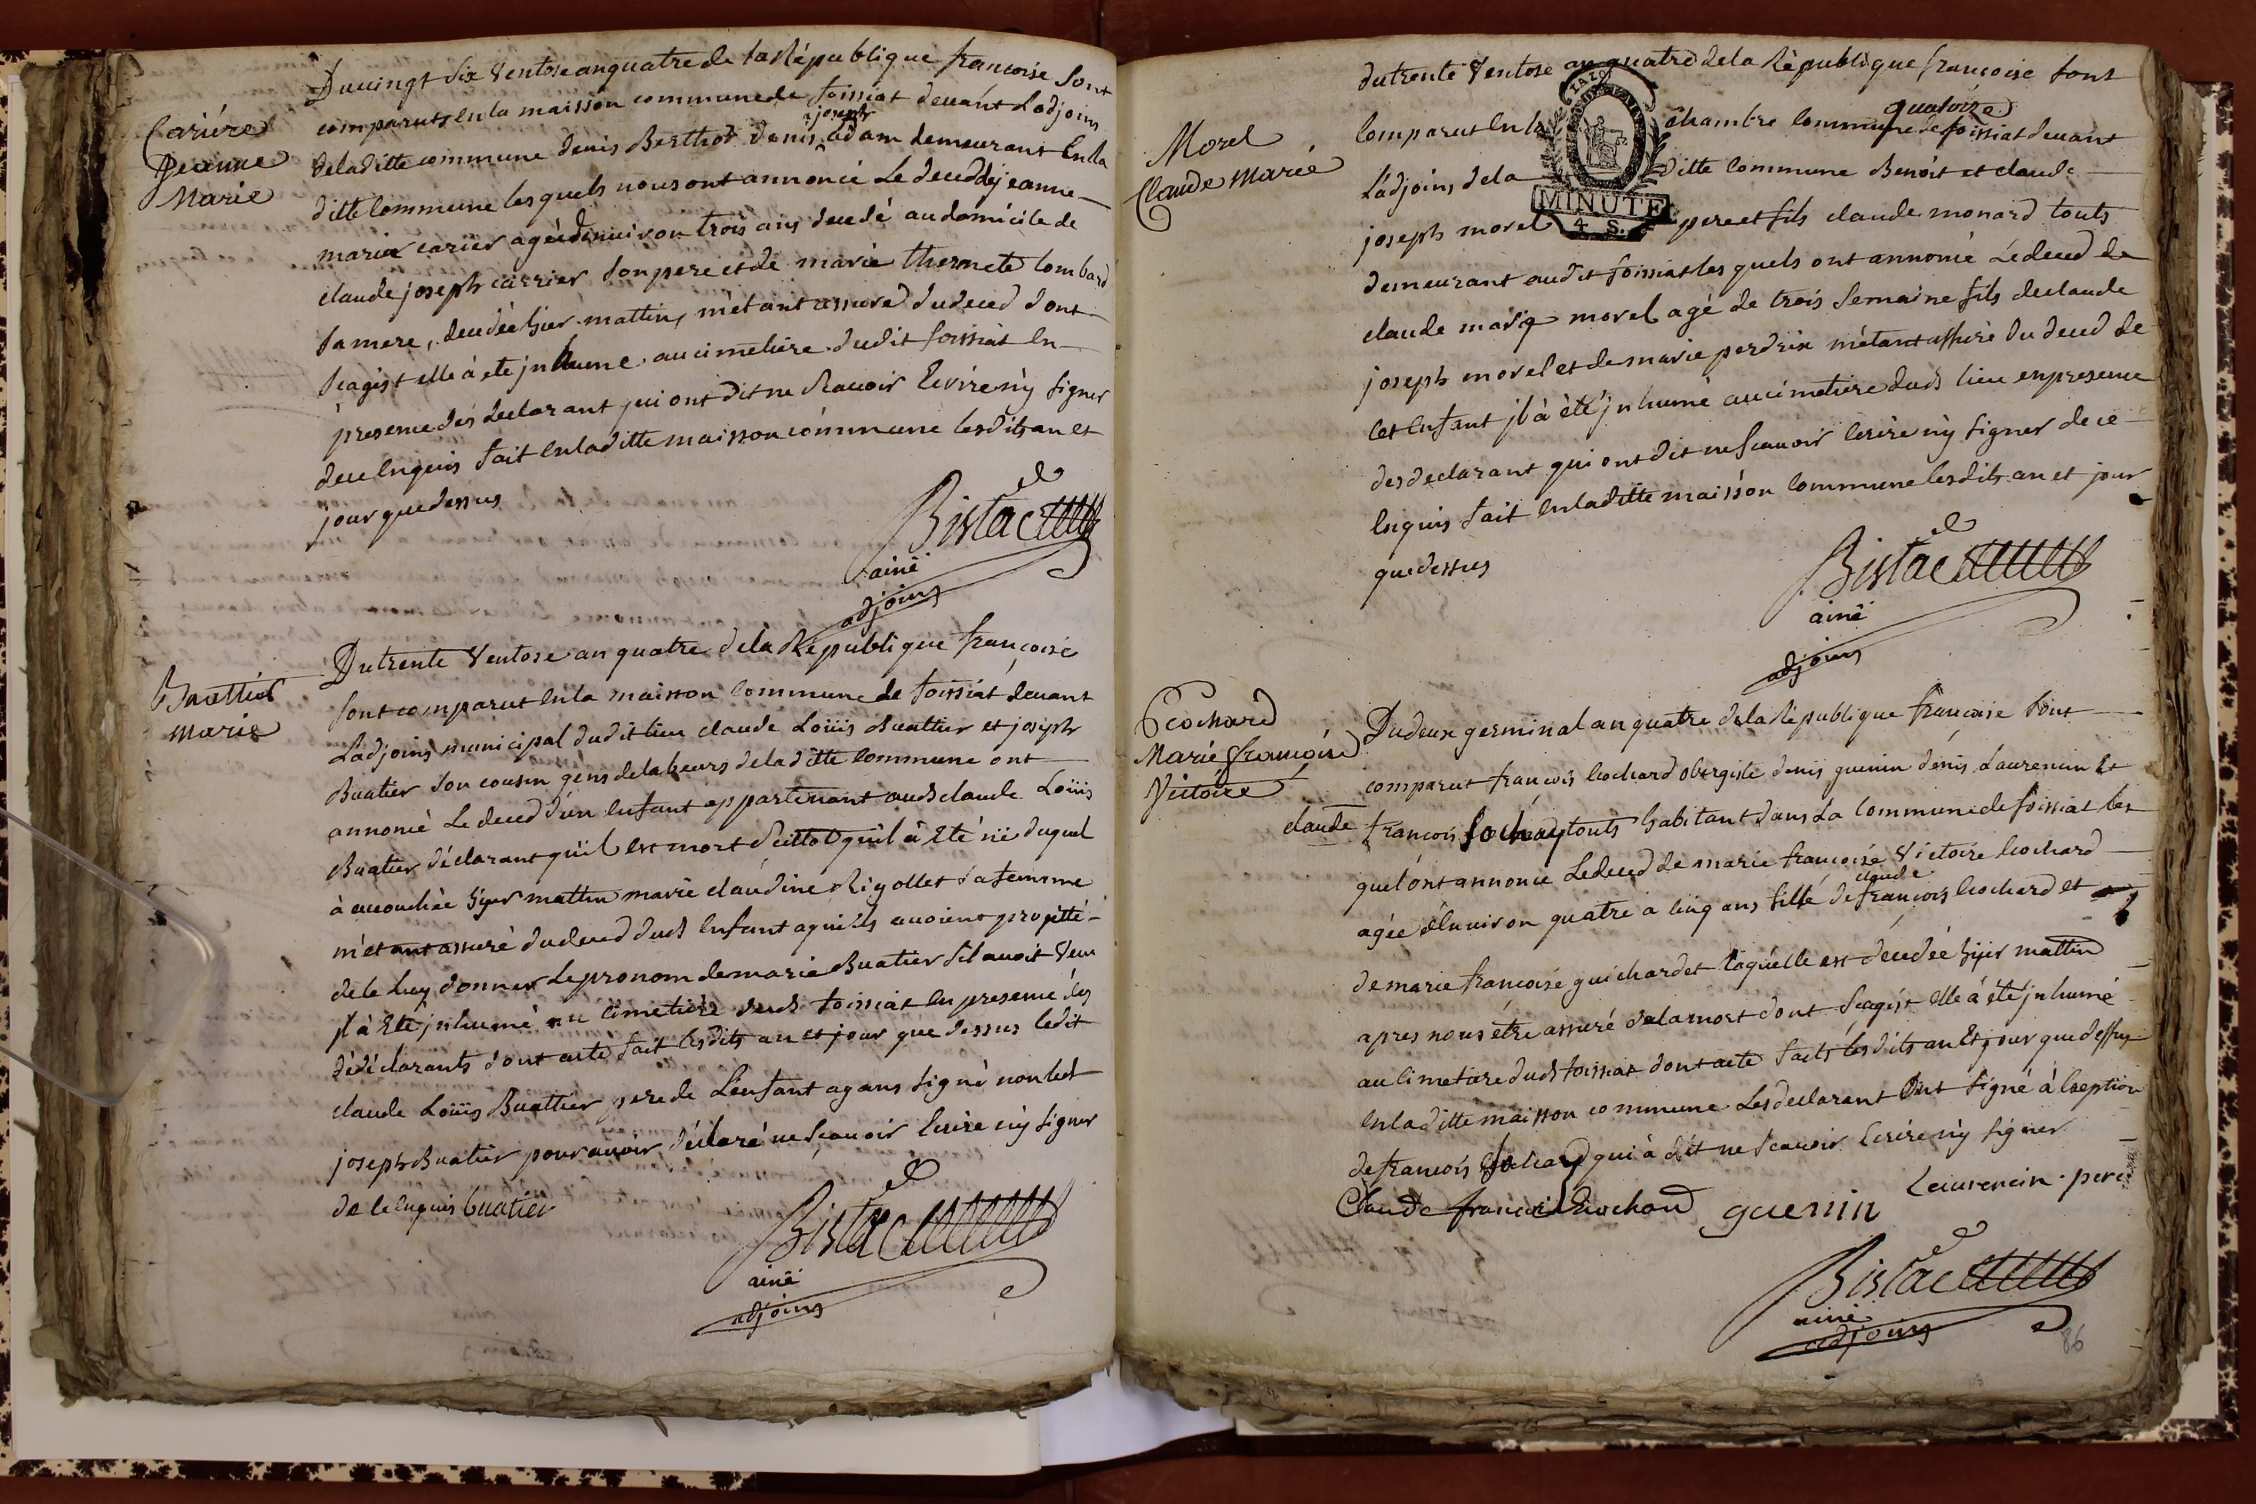 Carière
Jeanne
Marie
Du vingt six Ventose an quatre de la République francoise sont
comparuts en la maisson commune de foissiat devant Ladjoins
de laditte commune denis Berthod denis joseph adam demeurant En la
ditte Commune lesquels nous ont annoncé Le deced de jeanne
marie carier agée denviron trois ans decedé au domicile de
claude joseph carrier son pere et de marie thernete lombard
sa mere, decedée hier mattin, métant assuré du deced dont
sagist elle à eté jnhumé au cimetiere dudit foissiat en
présence des declarant qui ont dit ne scavoir Ecrire n'y signer
de ce enquis fait en laditte maisson commune lesdits an et
jour que dessus
Bistac
ainé
adjoins
Buattier
Marie
Du trente Ventose an quatre de la République françoise
sont comparut en la maisson commune de foissiat devant
Ladjoins municipal dudit lieu claude Loüis Buattier et joseph
Buatier son cousin gens de labeurs de laditte commune ont
annoncé Le deced d'un enfant appartenant audt claude Loüis
Buatier déclarant qu'il est mort si tot qu'il à Eté né duquel
à accouchée hyer mattin marie claudine Rigollet sa femme
m'etant assuré du deced dudt enfant a qui ils avoient projetté
de le luy donner Le pronom de marie Buatier sil avoit veu
jl à Eté jnhumé au cimetiere dudt foissiat en presence des
dédéclarants dont acte fait lesdits an et jour que dessus ledit
claude Loüis Buattier pere de L'enfant ayans signé non ledt
joseph Buatier pour avoir déclaré ne scavoir Ecrire n'y signer
de ce enquis buatier
Bistac
ainé
adjoins
Morel
Claude Marie
du trente Ventose an quatre de la République françoise sont
comparut en la chambre commune de foissiat devant
Ladjoins de la ditte commune Benoit et claude
joseph morel pere et fils claude monard touts
MINUTE
4 S.
demeurant audit foissiat lesquels ont annoncé Le deced de
claude marie morel agé de trois semaine fils de claude
joseph morel et de marie perdrix métant assuré du deced de
cet Enfant jl à èté jnhumé au cimetiere dudt lieu en presence
des declarant qui ont dit ne scavoir Ecrire n'y signer de ce
Enquis fait en laditte maisson commune lesdits an et jour
que dessus
Bistac
ainé
adjoins
Ecochard
Marie françoise
Victoire
Du deux germinal an quatre de la République françoise sont
comparut françois Ecochard obergiste denis guenin denis Laurencin Et
claude francois touts habitant dans La commune de foissiat les
quel ont annoncé Le deced de marie françoise Victoire Ecochard
agée d'Environ quatre a cinq ans fille de claude françois Ecochard et
de marie francoise guichardet laquelle est décedée hyer mattin
apres nous être assuré de la mort dont sagist elle à été jnhumé
au cimetiere dudt foissiat dont acte faits lesdits an Et jour que dessus
En laditte maisson commune Les declarant ont signé à lception
de francois qui à dit ne scavoir Ecrire n'y signer
Claude francoi Ecochard guenin Laurencin pere
Bistac
ainé
adjoins
86